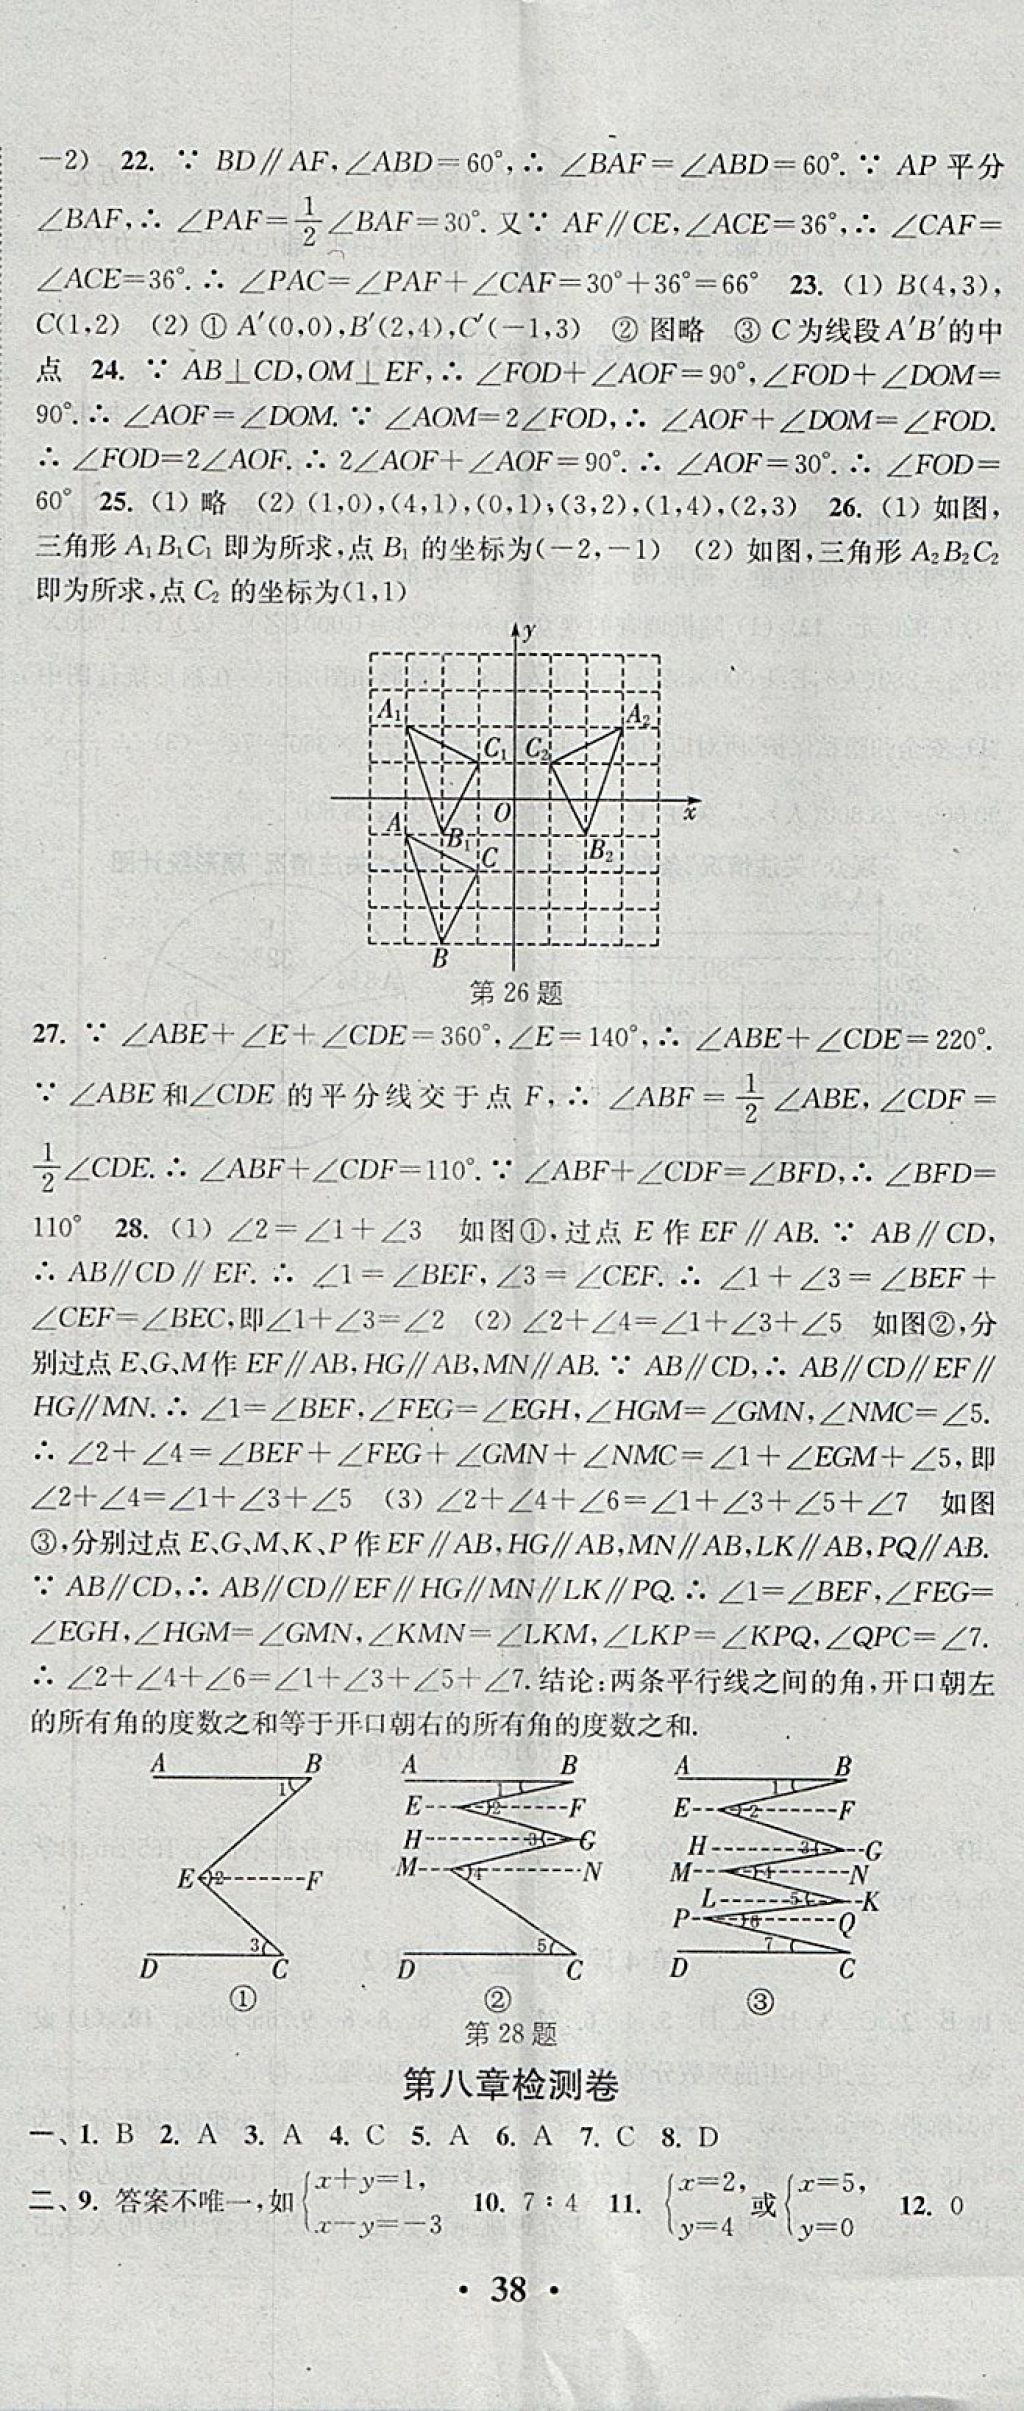 -2)　22. ∵ BD∥AF,∠ABD=60°,∴ ∠BAF=∠ABD=60°.∵ AP 平分
∠BAF,∴ ∠PAF=1/2∠BAF=30°.又∵ AF∥CE,∠ACE=36°,∴ ∠CAF=
∠ACE=36°.∴ ∠PAC=∠PAF+∠CAF=30°+36°=66°　23. (1) B(4,3),
C(1,2)　(2) ① A′(0,0),B′(2,4),C′(-1,3)　② 图略　③ C为线段A′B′的中
点　24. ∵ AB⊥CD,OM⊥EF,∴ ∠FOD+∠AOF=90°,∠FOD+∠DOM=
90°.∴ ∠AOF=∠DOM.∵ ∠AOM=2∠FOD,∴ ∠AOF+∠DOM=∠FOD.
∴ ∠FOD=2∠AOF.∴ 2∠AOF+∠AOF=90°.∴ ∠AOF=30°.∴ ∠FOD=
60°　25. (1) 略　(2) (1,0),(4,1),(0,1),(3,2),(1,4),(2,3)　26. (1) 如图,
三角形 A₁B₁C₁ 即为所求,点 B₁ 的坐标为(-2,-1)　(2) 如图,三角形 A₂B₂C₂
即为所求,点 C₂ 的坐标为(1,1)
y
A₁ A₂
C₁ C₂
O x
A B₁ B₂
C
B
第 26 题
27. ∵ ∠ABE+∠E+∠CDE=360°,∠E=140°,∴ ∠ABE+∠CDE=220°.
∵ ∠ABE和∠CDE 的平分线交于点 F,∴ ∠ABF=1/2∠ABE,∠CDF=
1/2∠CDE.∴ ∠ABF+∠CDF=110°.∵ ∠ABF+∠CDF=∠BFD,∴ ∠BFD=
110°　28. (1) ∠2=∠1+∠3　如图①,过点 E 作 EF∥AB.∵ AB∥CD,
∴ AB∥CD∥EF.∴ ∠1=∠BEF,∠3=∠CEF.∴ ∠1+∠3=∠BEF+
∠CEF=∠BEC,即∠1+∠3=∠2　(2) ∠2+∠4=∠1+∠3+∠5　如图②,分
别过点 E、G、M作 EF∥AB,HG∥AB,MN∥AB.∵ AB∥CD,∴ AB∥CD∥EF∥
HG∥MN.∴ ∠1=∠BEF,∠FEG=∠EGH,∠HGM=∠GMN,∠NMC=∠5.
∴ ∠2+∠4=∠BEF+∠FEG+∠GMN+∠NMC=∠1+∠EGM+∠5,即
∠2+∠4=∠1+∠3+∠5　(3) ∠2+∠4+∠6=∠1+∠3+∠5+∠7　如图
③,分别过点 E、G、M、K、P 作 EF∥AB,HG∥AB,MN∥AB,LK∥AB,PQ∥AB.
∵ AB∥CD,∴ AB∥CD∥EF∥HG∥MN∥LK∥PQ.∴ ∠1=∠BEF,∠FEG=
∠EGH,∠HGM=∠GMN,∠KMN=∠LKM,∠LKP=∠KPQ,∠QPC=∠7.
∴ ∠2+∠4+∠6=∠1+∠3+∠5+∠7.结论:两条平行线之间的角,开口朝左
的所有角的度数之和等于开口朝右的所有角的度数之和.
A B 1 E 2 F 3 D C ①
A B 1 E 2 F H 3 G M 4 N 5 D C ②
A B 1 E 2 F H 3 G M 4 N L 5 K P 6 Q 7 D C ③
第 28 题
第八章检测卷
一、1. B　2. A　3. A　4. C　5. A　6. A　7. C　8. D
二、9. 答案不唯一,如{x+y=1, x-y=-3　10. 7∶4　11. {x=2, y=4 或{x=5, y=0　12. 0
· 38 ·